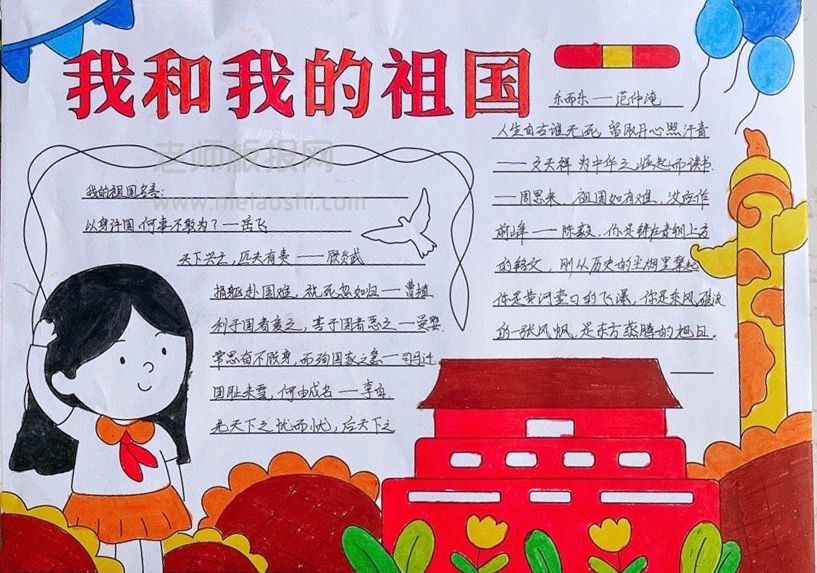 我和我的祖国
老师板报网
www.melaoshi.com
我的祖国名言:
以身许国,何事不敢为?——岳飞
天下兴亡,匹夫有责——顾炎武
捐躯赴国难,视死忽如归——曹植
利于国者爱之,害于国者恶之——晏婴
常思奋不顾身,而殉国家之急——司马迁
国耻未雪,何由成名——李白
先天下之忧而忧,后天下之
乐而乐——范仲淹
人生自古谁无死,留取丹心照汗青
——文天祥 为中华之崛起而读书
——周恩来、祖国如有难,汝应作
前峰——陈毅、你是铸在青铜上方
的铭文,刚从历史的尘烟里
你是黄河壶口的飞瀑,你是东风
的一张风帆,是东方蒸腾的旭日。